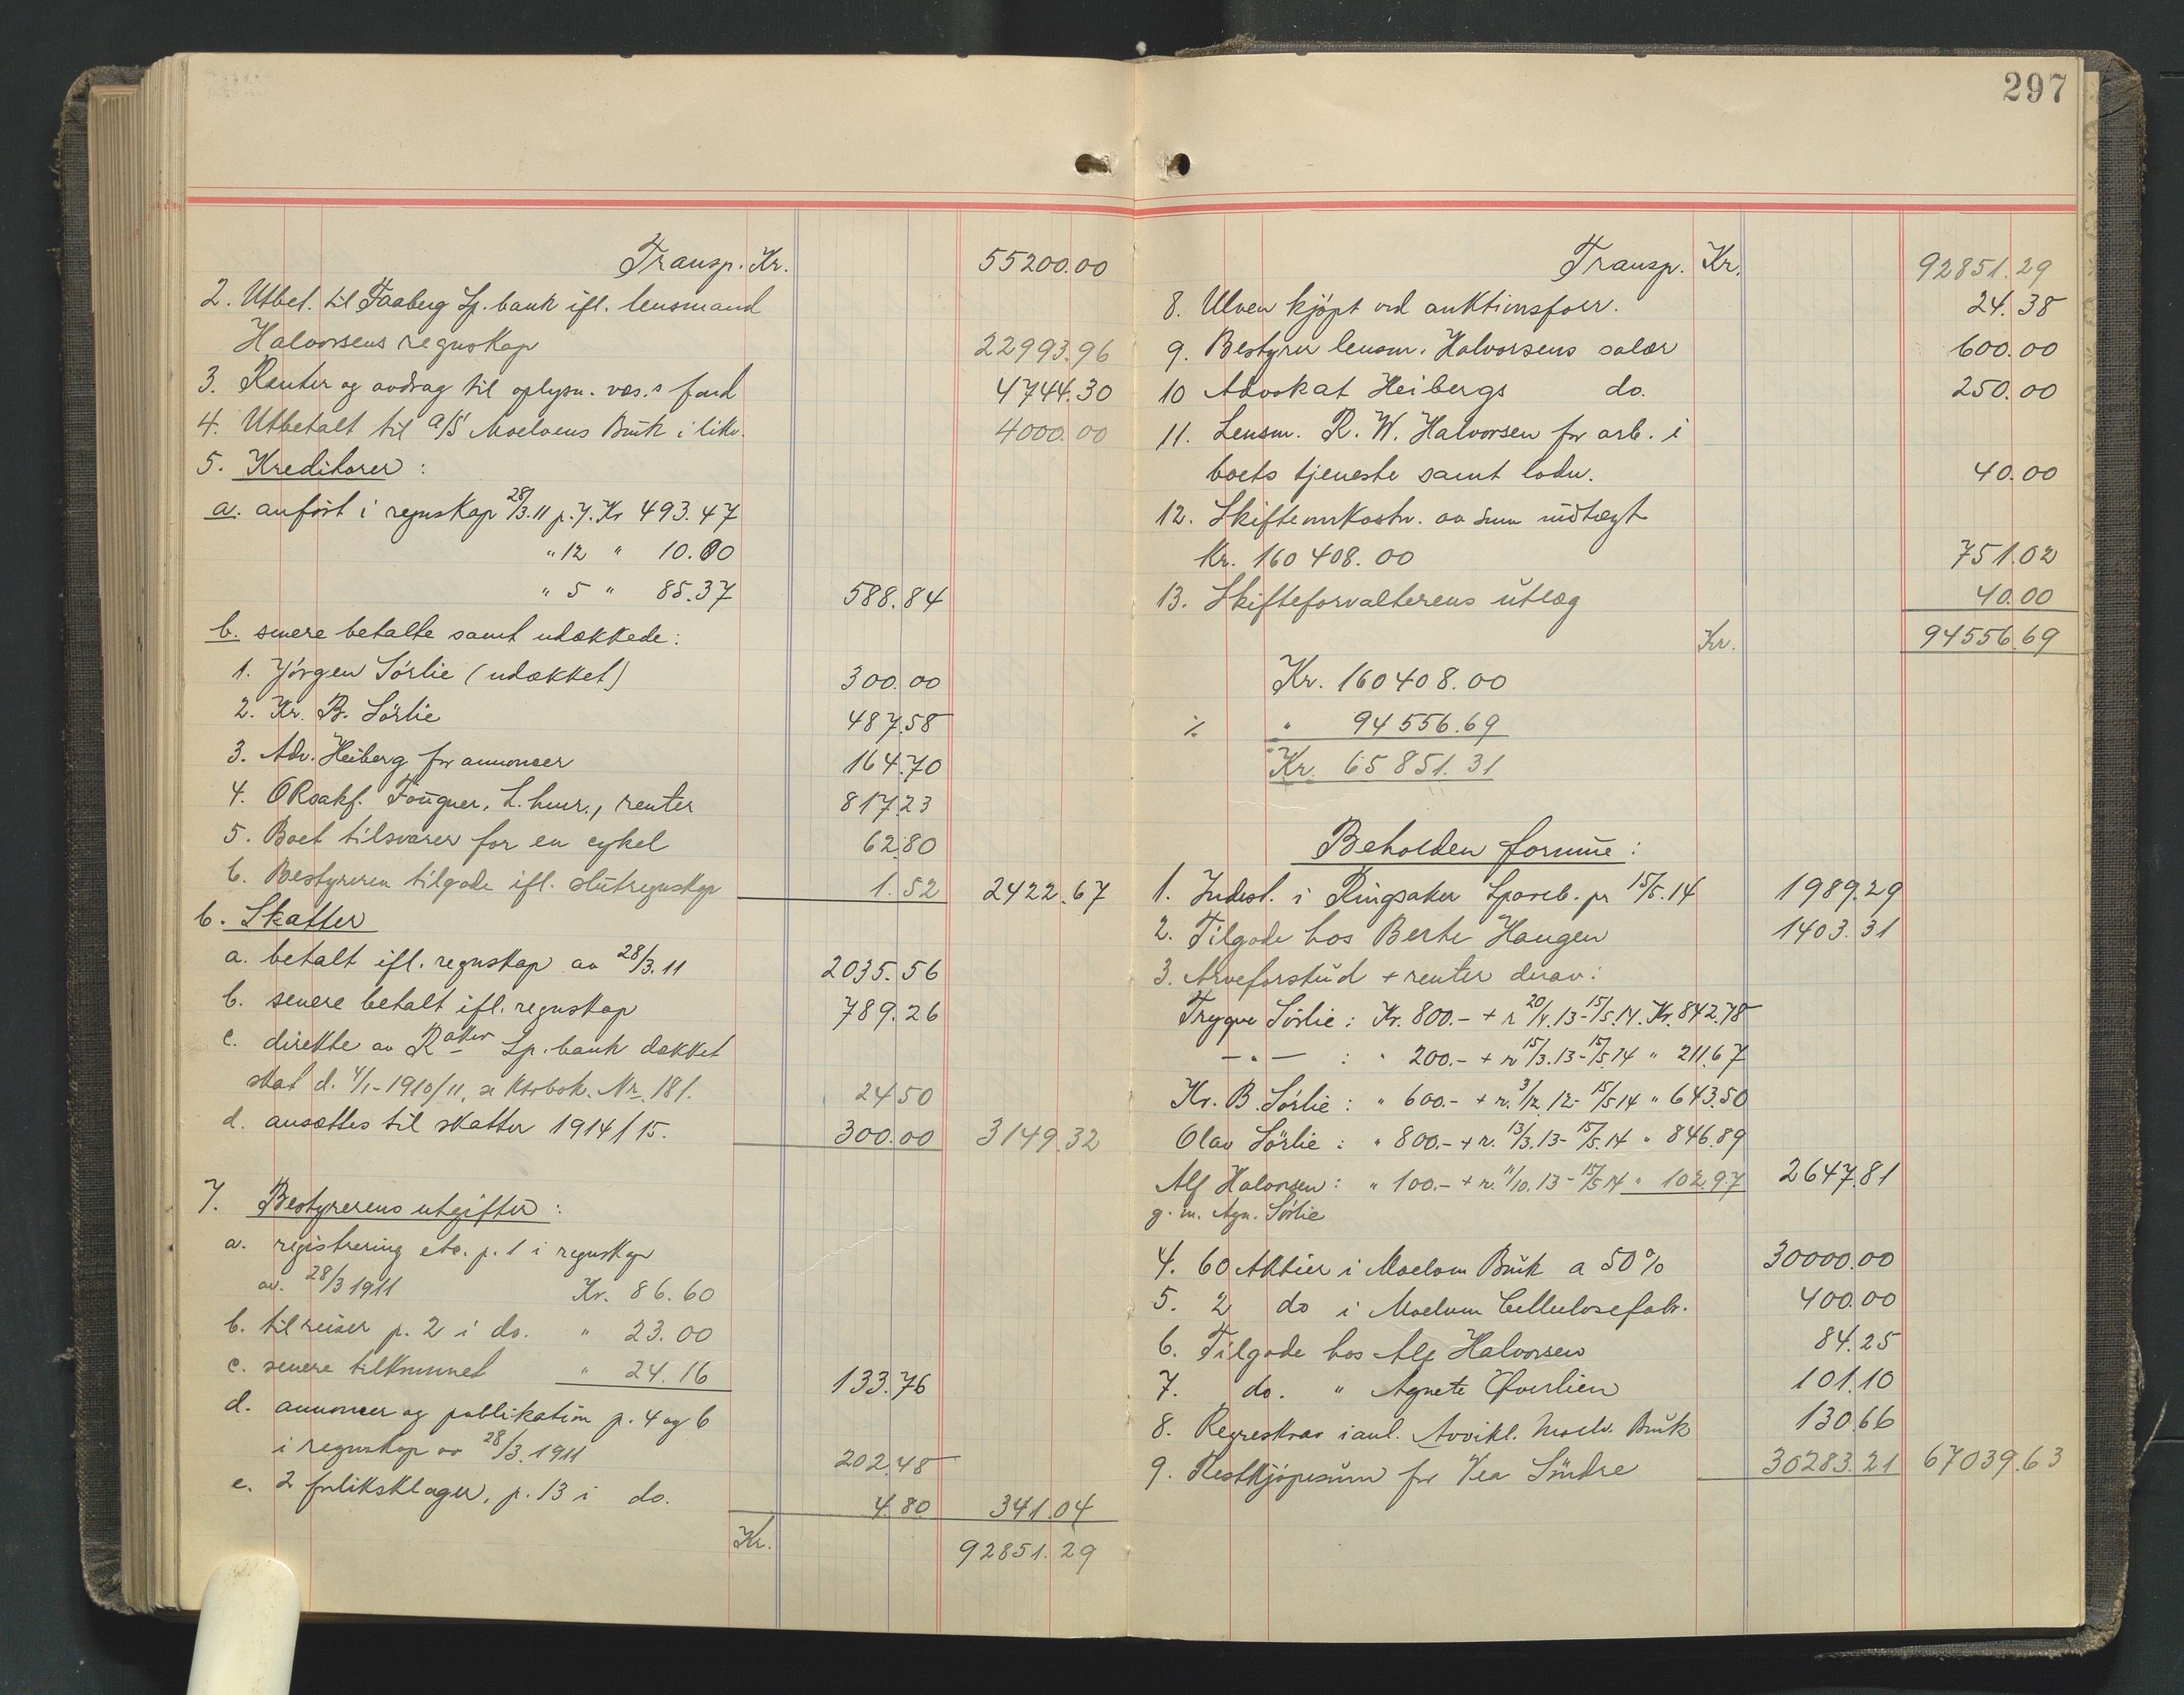 Transp. Kr. 55200.00
2. Utbet. til Faaberg Sp. bank ifl. lensmand
Halvorsens regnskap 22993.96
3. Renter og avdrag til oplysn. væs.s fond 4744.30
4. Utbetalt til A/S Moelvens Bruk i likv. 4000.00
5. Kreditorer:
a. anført i regnskap 28/3.11 p. 7. Kr 493.47
" 12 " 10.00
" 5 " 85.37 588.84
b. senere betalte samt udækkede:
1. Jörgen Sörlie (udækket) 300.00
2. Kr. B. Sörlie 487.58
3. Adv. Heiberg for annonser 164.70
4. ORsakf. Fougner, L.hmr., renter 817.23
5. Boet tilsvarer for en cykel 62.80
6. Bestyreren tilgode ifl. slutregnskap 1.52 2422.67
6. Skatter
a. betalt ifl. regnskap av 28/3.11 2035.56
b. senere betalt ifl. regnskap 789.26
c. direkte av Raker Sp. bank dækket
skat d. 4/1-1910/11, se Ktrbok. Nr. 181. 24.50
d. ansættes til skatter 1914/15. 300.00 3149.32
7. Bestyrerens utgifter:
a. registrering etc. p. 1 i regnskap
av. 28/3 1911 Kr. 86.60
b. til reiser p. 2 i do. " 23.00
c. senere tilkommet " 24.16 133.76
d. annonser og publikation p. 4 og 6
i regnskap av 28/3.1911 202.48
e. 2 forliksklager, p. 13 i do. 4.80 341.04
Kr. 92851.29
297
Transp. Kr. 92851.29
8. Ulven kjøpt ved auktionsforr. 24.38
9. Bestyrer lensm. Halvorsens salær 600.00
10 Advokat Heibergs do. 250.00
11. Lensm. R. W. Halvorsen for arb. i
boets tjeneste samt lodn. 40.00
12. Skifteomkostn. av Sum indtægt
Kr. 160408.00 751.02
13. Skifteforvalterens utlæg 40.00
Kr. 94556.69
Kr. 160408.00
÷ " 94556.69
Kr. 65851.31
Beholden formue:
1. Indest. i Ringsaker Spareb. pr 15/5.14 1989.29
2. Tilgode hos Berte Haugen 1403.31
3. Arveforskud + renter derav:
Trygve Sörlie: Kr. 800.- + r 20/4.13-15/5.14. Kr. 842.78
- " - : " 200.- + r 15/3.13-15/5.14 " 211.67
Kr. B. Sörlie: " 600.- + r. 3/12.12-15/5 14 " 643.50
Olav Sörlie: " 800.- + r. 13/3.13-15/5.14 " 846.89
Alf Halvorsen: " 100.- + r. 11/10.13-15/5 14 " 102.97 2647.81
g. m. Agn. Sörlie
4. 60 Aktier i Moelven Bruk a 50% 30000.00
5. 2 do i Moelven Cellulosefabr. 400.00
6. Tilgode hos Alf Halvorsen 84.25
7. do. " Agnete Øverlien 101.10
8. Regreskrav i anl. Avvikl. Moelv. Bruk 130.66
9. Restkjøpesum for Vea Søndre 30283.21 67039.63